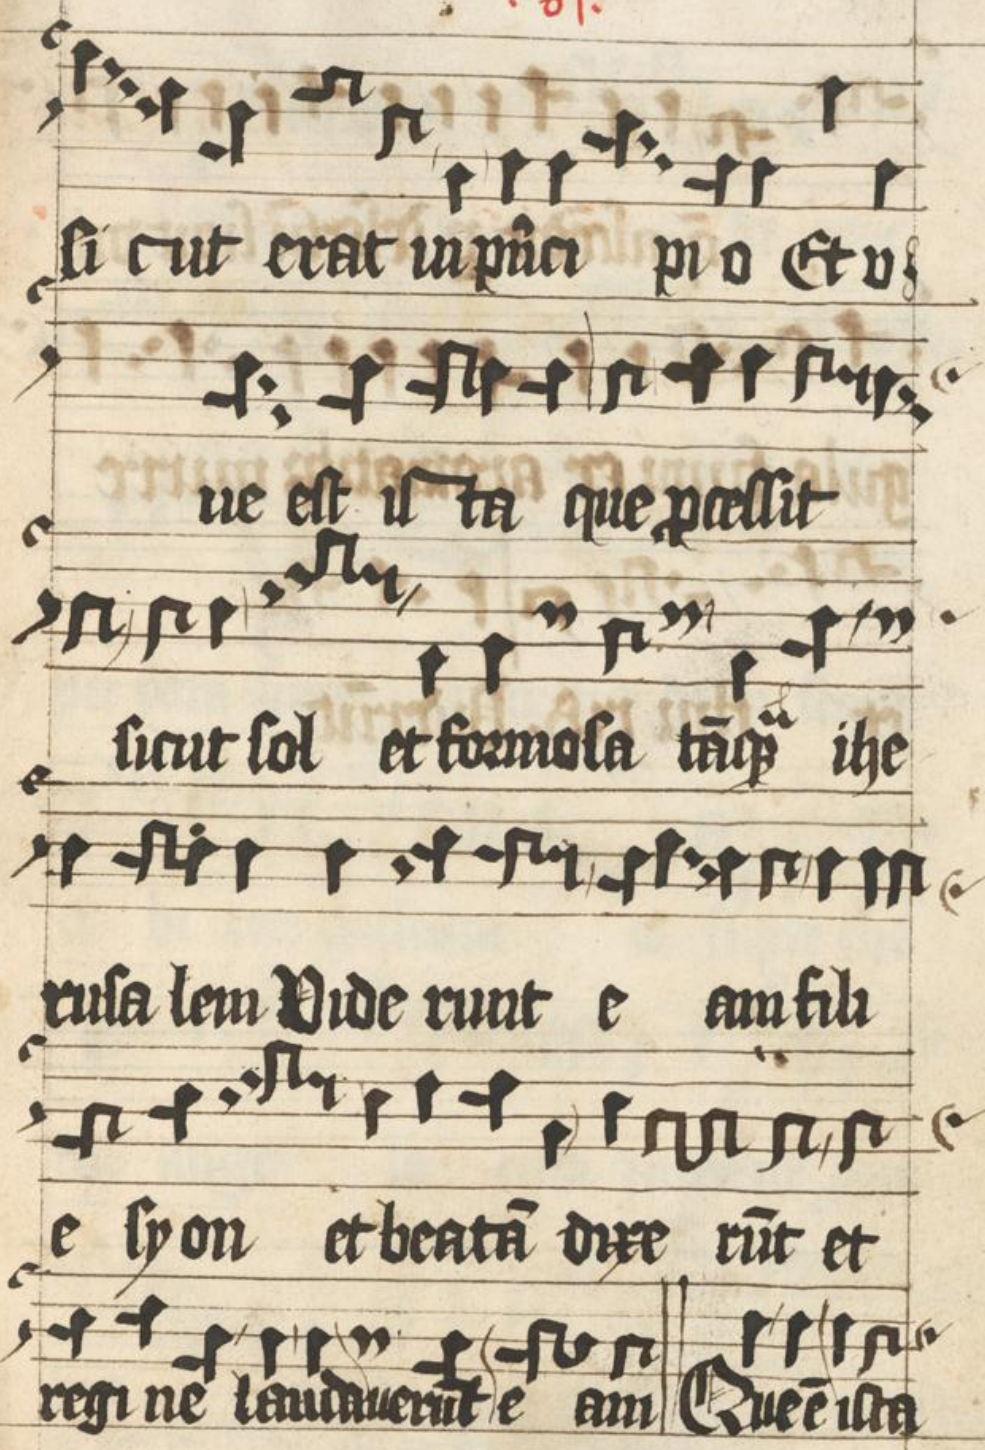 .61.
si cut erat in pn̄ci pi o Et v
ue est is ta que ꝓcessit
sicut sol et formosa tāqͣꝫ ihe
rusa lem Vide runt e am fili
e syon et beatā dixe rūt et
regi ne laudaverūt e am Que ē ista